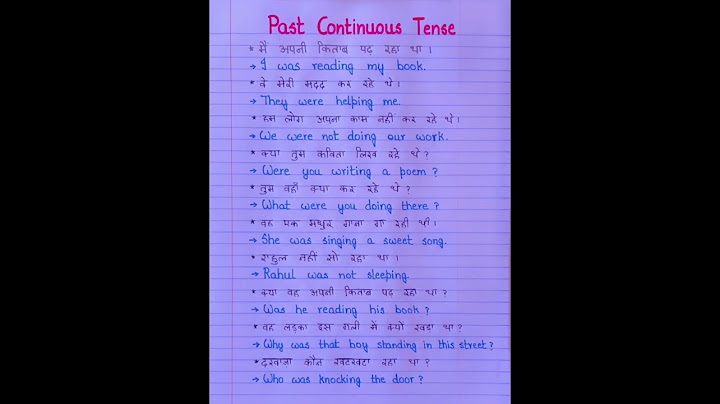 Past Continuous Tense
* मैं अपनी किताब पढ़ रहा था ।
→ I was reading my book.
* वे मेरी मदद कर रहे थे ।
→ They were helping me.
* हम लोग अपना काम नहीं कर रहे थे ।
→ We were not doing our work.
* क्या तुम कविता लिख रहे थे ?
→ Were you writing a poem ?
* तुम वहाँ क्या कर रहे थे ?
→ What were you doing there ?
* वह एक मधुर गाना गा रही थी ।
→ She was singing a sweet song.
* राहुल नहीं सो रहा था ।
→ Rahul was not sleeping.
* क्या वह अपनी किताब पढ़ रहा था ?
→ Was he reading his book ?
* वह लड़का इस गली में क्यों खड़ा था ?
→ Why was that boy standing in this street ?
* दरवाजा कौन खटखटा रहा था ?
→ Who was knocking the door ?